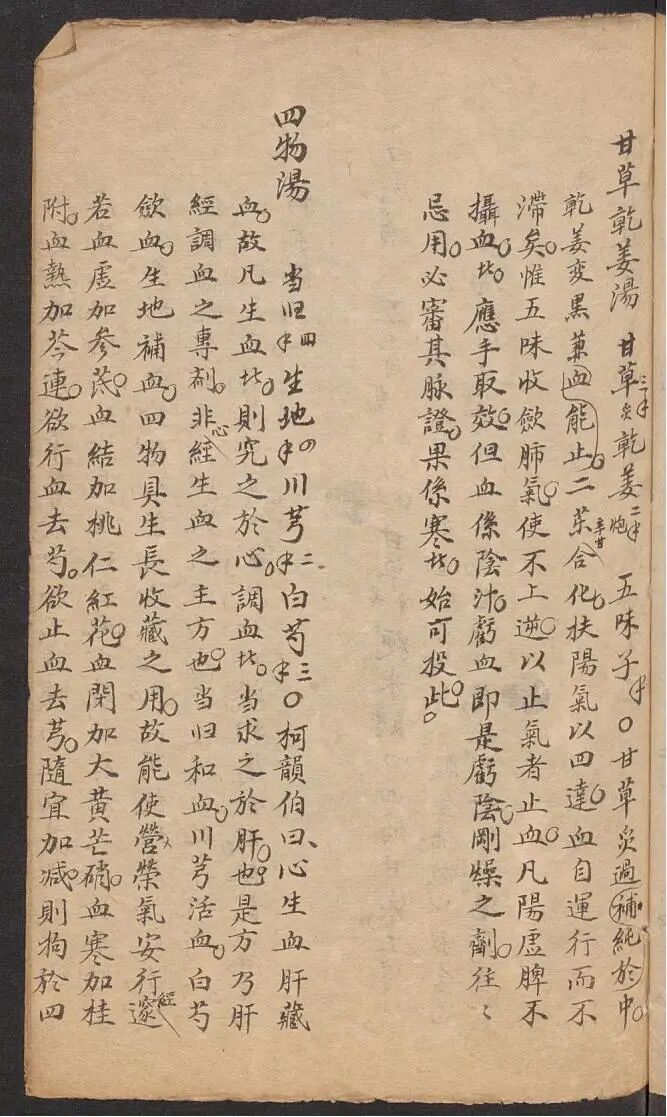 甘草乾姜湯 甘草三钱炙乾姜二钱炮 五味子钱〇甘草炙過補純於中
乾姜変黑兼血能止二药辛甘合化扶陽氣以四達血自運行而不
滞矣惟五味收斂肺氣使不上逆以止氣者止血凡陽虛脾不
攝血者應手取效但血係陰汁虧血即是虧陰剛燥之劑往〻
忌用必審其脉證果係寒者始可投此
四物湯 当归四钱生地四钱川芎二钱白芍三钱〇柯韻伯曰心生血肝藏
血故凡生血者則究之於心調血者当求之於肝也是方乃肝
經調血之專劑非心經生血之主方也当归和血川芎活血白芍
斂血生地補血四物具生長收藏之用故能使營榮氣安行經邃
若血虛加参芪血結加桃仁紅花血閉加大黄芒硝血寒加桂
附血熱加芩連欲行血去芍欲止血去芎隨宜加减則拘於四